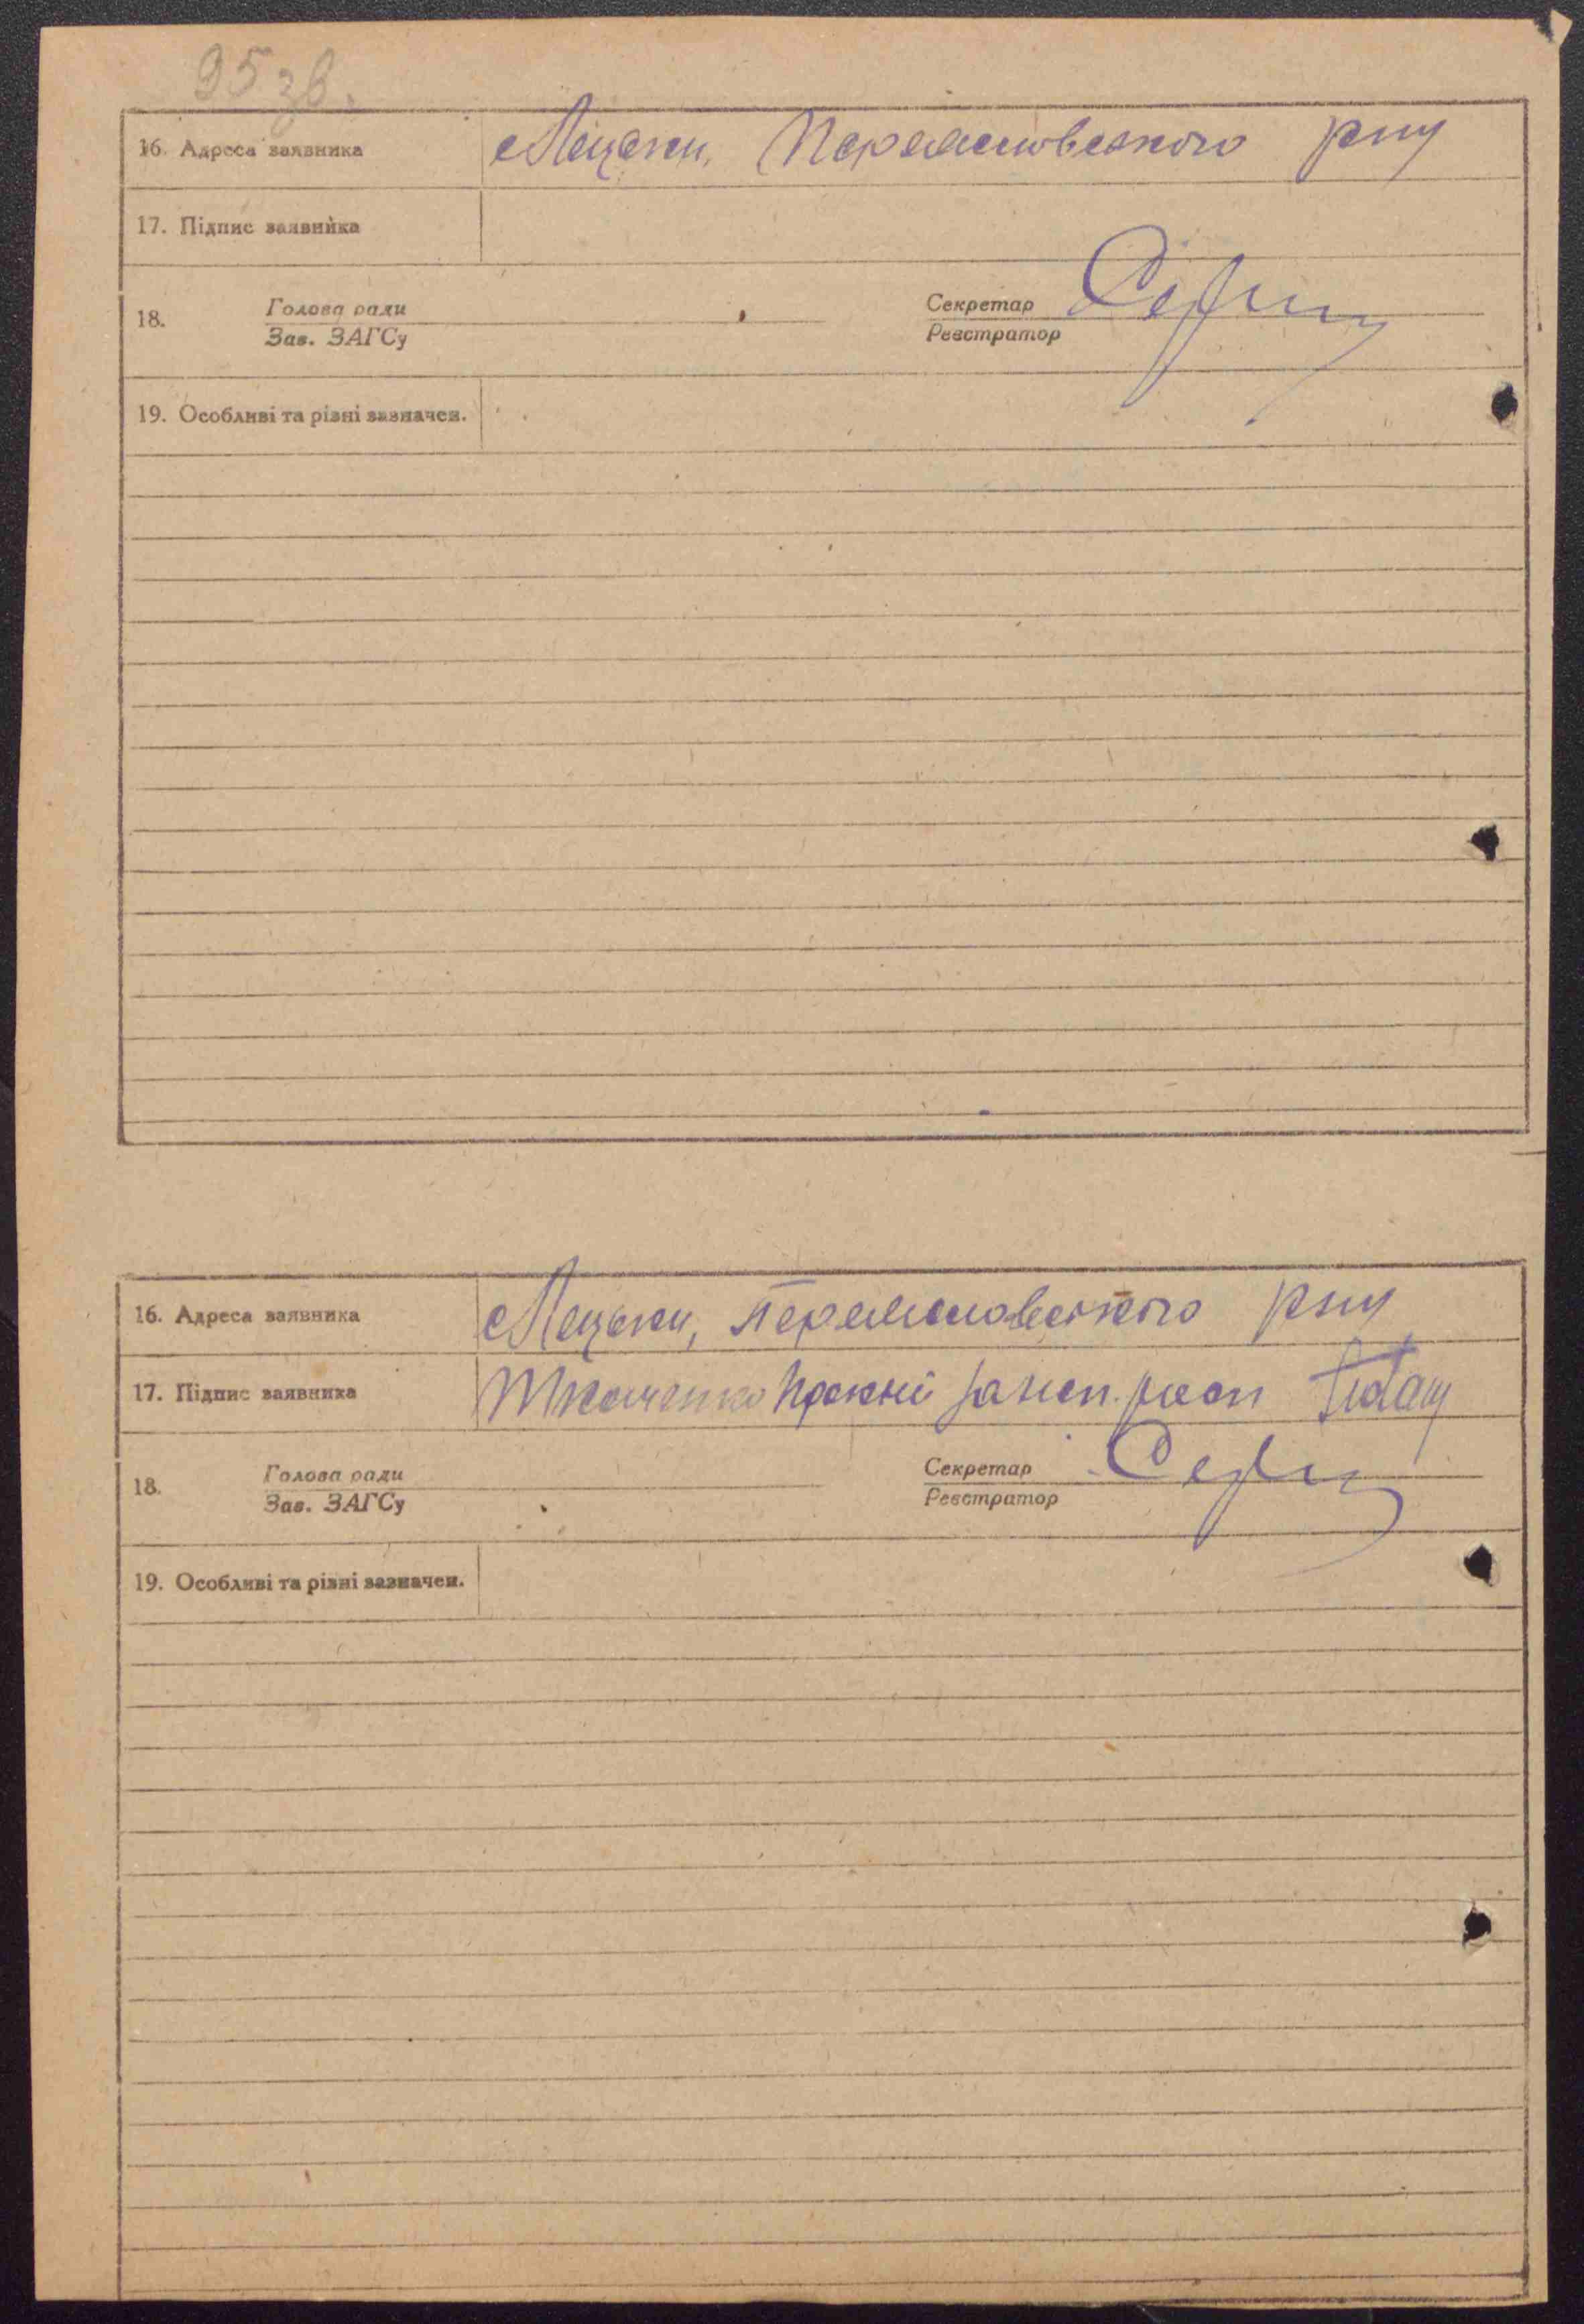 95 зв.
16. Адреса заявника с Лецьки, Переяславського р-ну
17. Підпис заявника
18. Голова ради
Зав. ЗАГСу
Секретар
Реєстратор
19. Особливі та різні зазначен.
16. Адреса заявника с Лецьки, Переяславського р-ну
17. Підпис заявника Ткаченко
18. Голова ради
Зав. ЗАГСу
Секретар
Реєстратор
19. Особливі та різні зазначен.